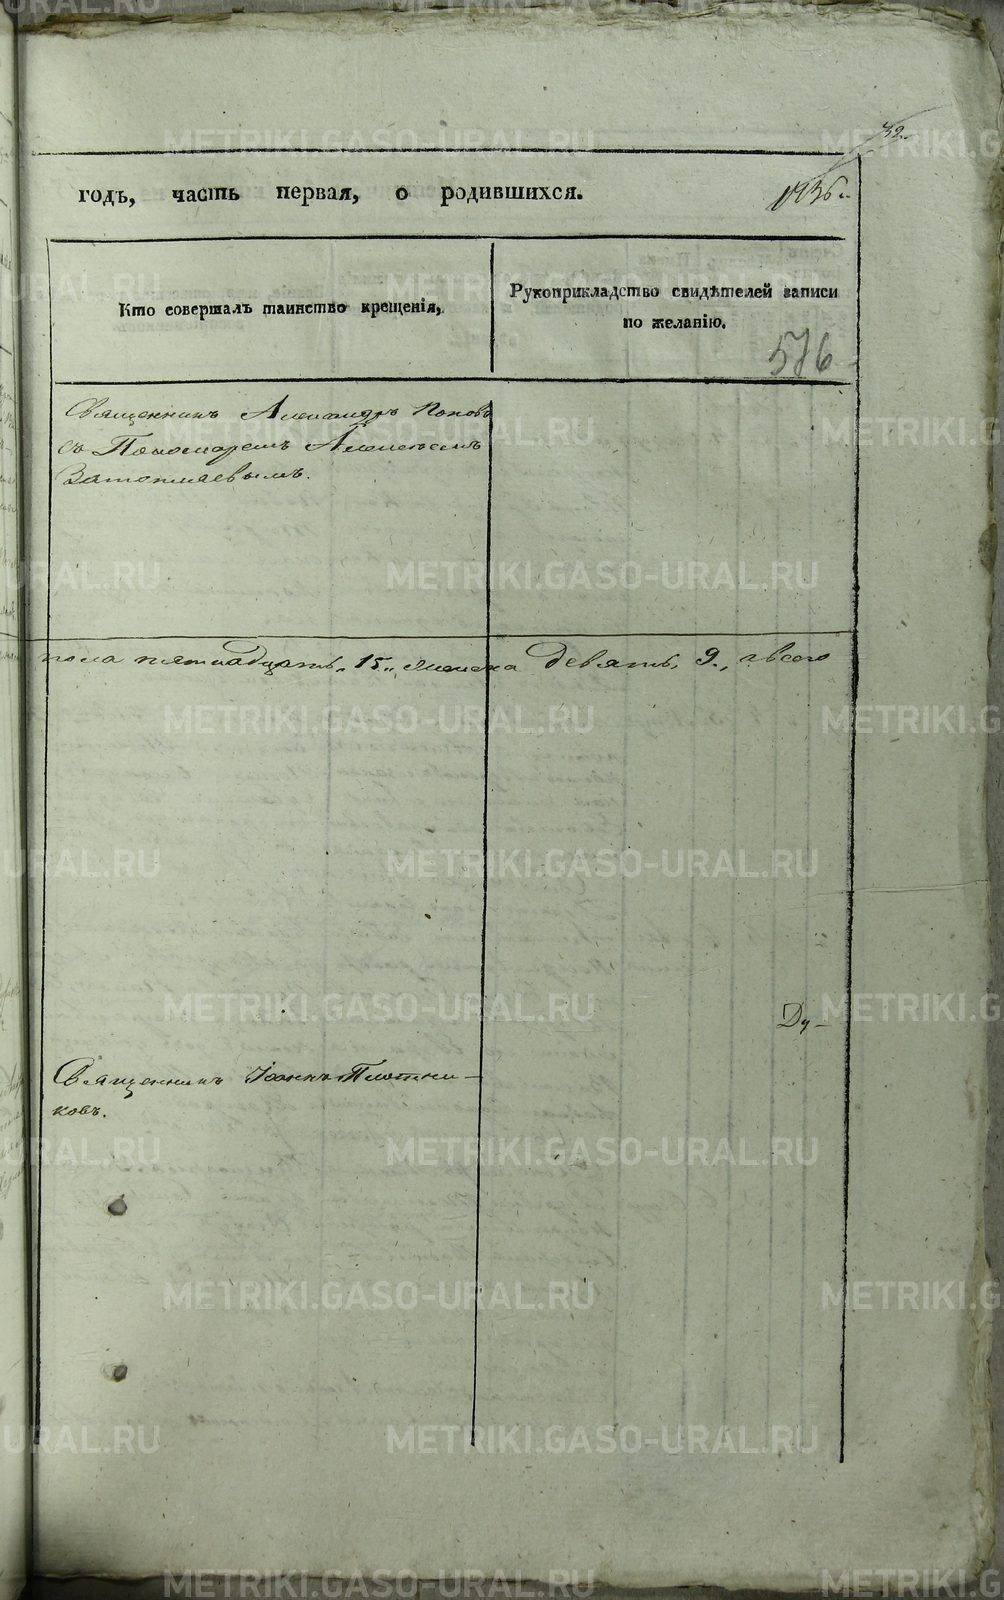 32.
годъ, часть первая, о родившихся.
1936.
Кто совершалъ таинство крещенія,
Рукоприкладство свидѣтелей записи
по желанію.
576
Священникъ Александръ Поповъ
съ Пономаремъ Алексѣемъ
Затопляевымъ.
пола пятнадцать „15„ женска девять, 9., а всего
Ду-
Священникъ Іоаннъ Плотни-
ковъ.
METRIKI.GASO-URAL.RU